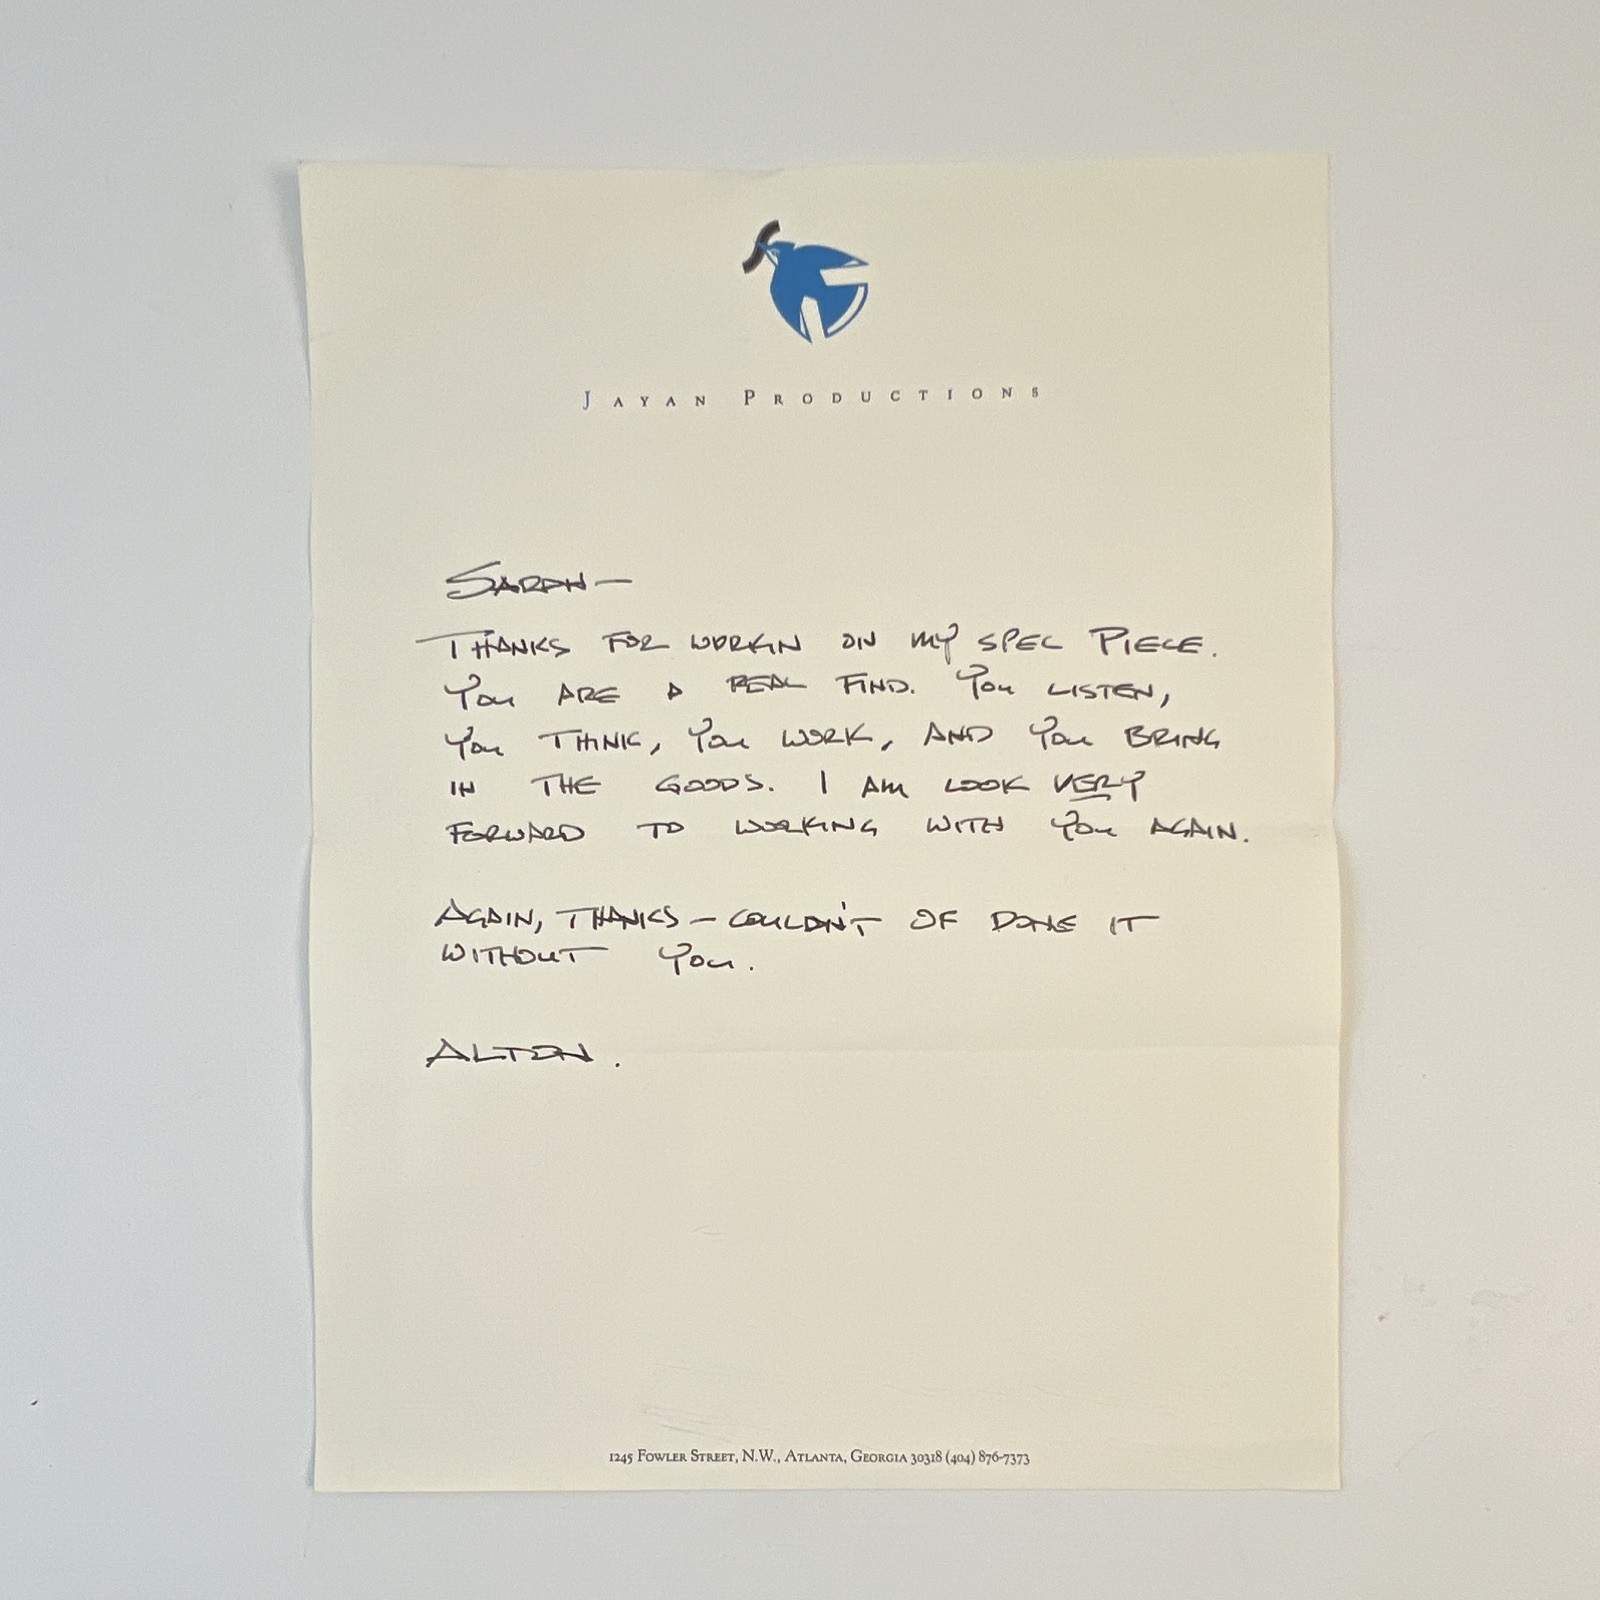 JAYAN PRODUCTIONS
SARAH—
THANKS FOR WORKIN ON MY SPEC PIECE.
YOU ARE A REAL FIND. YOU LISTEN,
YOU THINK, YOU WORK, AND YOU BRING
IN THE GOODS. I AM LOOK VERY
FORWARD TO WORKING WITH YOU AGAIN.
AGAIN, THANKS — COULDN'T OF DONE IT
WITHOUT YOU.
ALTON.
1245 FOWLER STREET, N.W., ATLANTA, GEORGIA 30318 (404) 876-7373